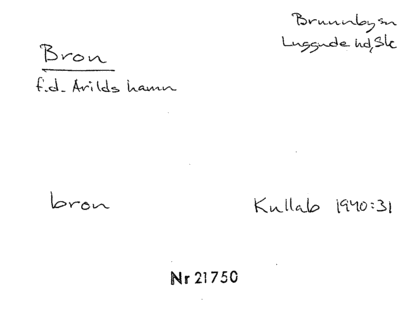 Bron
f.d. Arilds hamn
Brunnby sn
Luggude hd, Sk
bron
Kullab 1940:31
Nr 21750